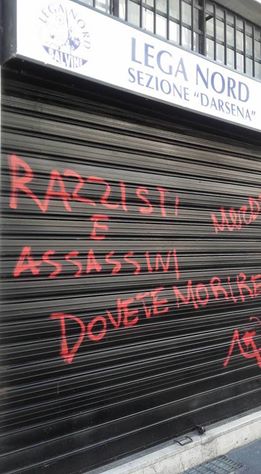 LEGA NORD
SALVINI
LEGA NORD
SEZIONE "DARSENA"
RAZZISTI
E
ASSASSINI
DOVETE MORIRE